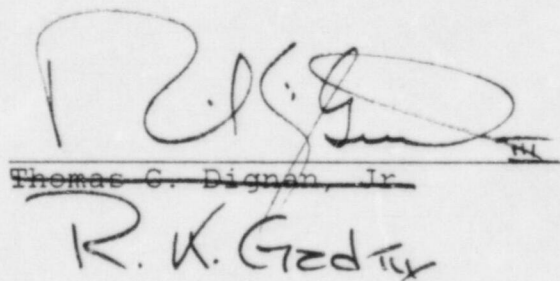 III
Thomas G. Dignan, Jr.
R. K. Gad III